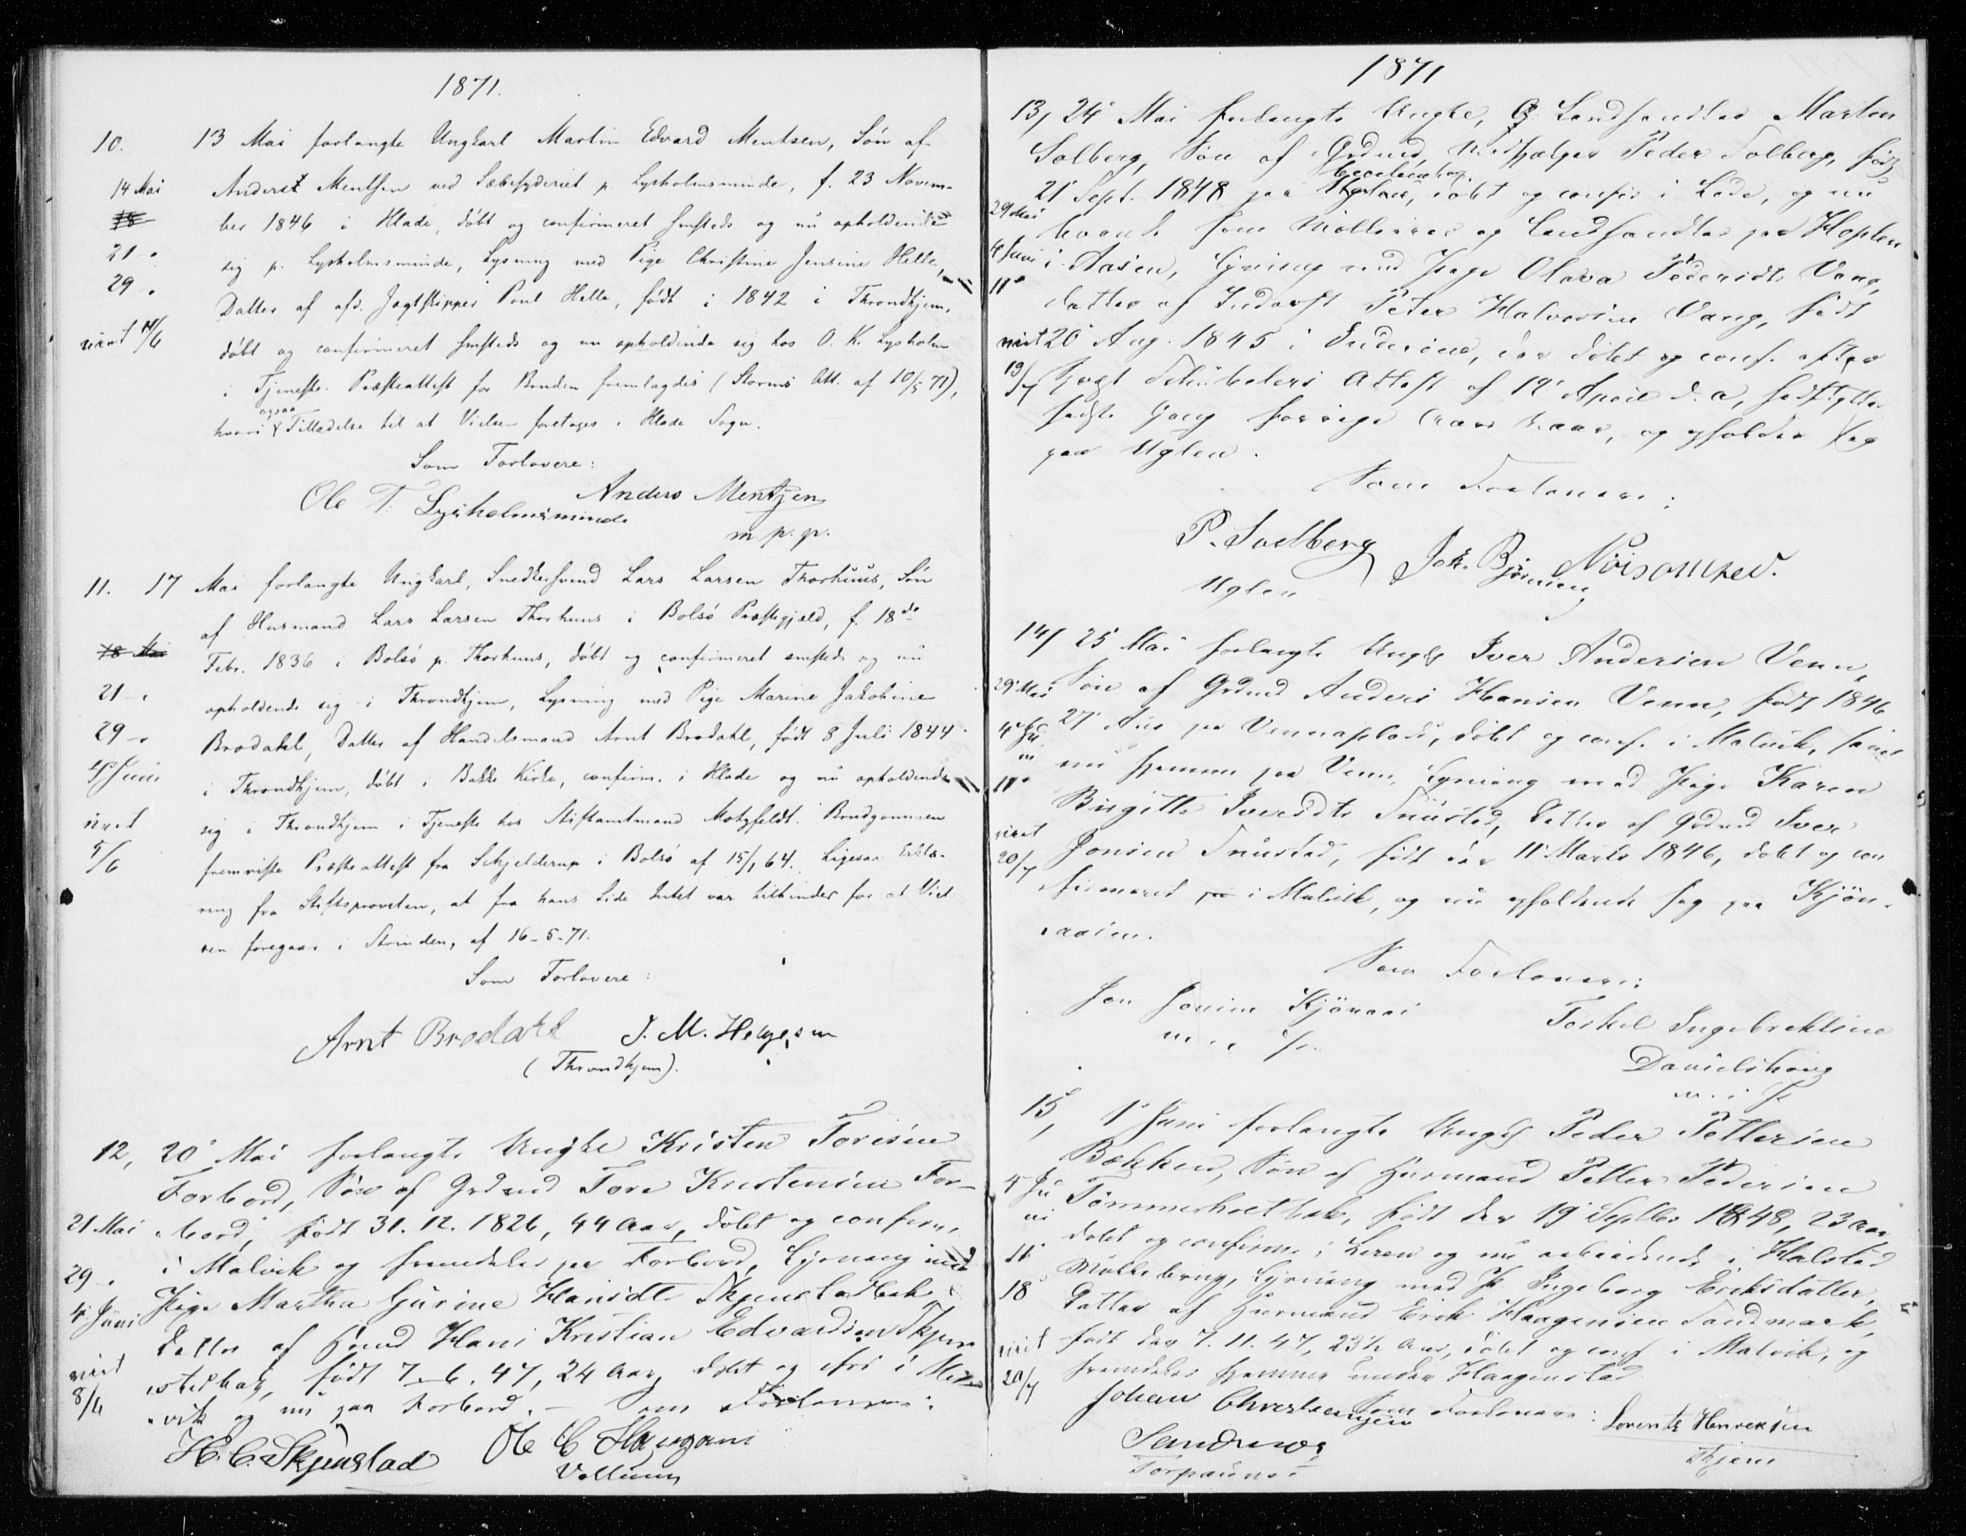 1871.
10. 13 Mai forlangte Ungkarl Martin Edvard Mentsen, Søn af
14 Mai Anders Mentsen ved Sæbesyderiet p. Lysholmsminde, f. 23 Novem-
18 ber 1846 i Hlade, døbt og confirmeret smsteds og nu opholdende
21 " sig p. Lysholmsminde, Lysning med Pige Christine Jensine Helle,
29 " Datter af afd. Jagtskipper Poul Helle, født i 1842 i Throndhjem,
viet /6 døbt og confirmeret smsteds og nu opholdende sig hos O. K. Lysholm
i Tjeneste. Præsteattest for Bruden fremlagdes (Storms Att. af 10/5 71),
ogsaa
hvori Tilladelse til at Vielsen foretages i Hlade Sogn.
Som Forlovere:
Ole T. Lysholmsminde Anders Mentzen
m. p. p.
11. 17 Mai forlangte Ungkarl, Snedkersvend Lars Larsen Thorhuus, Søn
af Husmand Lars Larsen Thorhuus i Bolsø Præstegjæld, f. 18de
18 Mai Febr. 1836 i Bolsø p. Thorhuus, døbt og confirmeret smsteds og nu
21 - " opholdende sig i Throndhjem, Lysning med Pige Marine Jakobine
29 - " Brodahl, Datter af Handelsmand Arnt Brodahl, født 8 Juli 1844
4 Juni i Throndhjem, døbt i Bakke Kirke, confirm. i Hlade og nu opholdende
viet sig i Throndhjem i Tjeneste hos Stiftamtmand Motzfeldt. Brudgommen
5/6 fremviste Præsteattest fra Schjelderup i Bolsø af 15/1 64. Ligesaa Erklæ-
ring fra Stiftsprovsten, at fra hans Side Intet var tilhinder for at Viel
sen foregaar i Strinden, af 16-5-71.
Som Forlovere:
Arnt Brodahl J. M. Helgesen
(Throndhjem).
12, 20 Mai forlangte Ungke Kristen Toresen
Forbord, Søn af Grdmd Tore Kristensen For-
21 Mai bord, født 31. 12. 1826, 44 Aar, døbt og confirm.
29 - " i Malvik og fremdeles paa Forbord, Lysning med
4 Juni Pige Martha Gurine Hansdt. Skjenstadbak
Datter af Hmd Hans Kristian Edvardsen Skjen
viet stadbak, født 7-6. 47, 24 Aar, døbt og i Mal
8/6 vik og nu paa Forbord. - Som Forlovere:
H. C. Skjenstad Ole C
1871
13, 24 Mai forlangte Ungke, Landhandler Morten
Solberg, Søn af Grdmd, Peder Solberg, født
21 Sept. 1848 paa døbt og confir i Lade, og nu
29 Mai boende som Møllerer og Landhandler paa Hoplen
4 Juni i Aasen, Lysning med Pige Olava Pedersdt. Vang,
11 " Datter af Inderst Peter Halvorsen Vang, født
viet 20 Aug. 1845 i Inderøen, der døbt og conf. efter
19/7 Attest af 12 April d. a,
Gang forrige Aar, og opholder sig
paa Uglen.
Som Forlovere:
P. Solberg Joh. Bjørnsen
Uglen
14/ 25 Mai forlangte Ungk Iver Andersen Venn,
29 Mai Søn af Grdmd Anders Hansen Venn, født 1846
4 Ju 27 Aug paa Vennaplads, døbt og conf. i Malvik, samt
ni nu hjemme paa Venn, Lysning med Pige Karen
11 " Birgitte Iversdt. Datter af Grdmd Iver
viet Jonsen født der 11 Marts 1846, døbt og con
20/7 firmeret i Malvik, og nu opholdende sig paa Kjøn-
aasen.
Som Forlovere:
Jon Jonsen Kjønaas Torkel Ingebrektsen
Danielshaug
15, 1 Juni forlangte Ungk Peder Pettersen
Bækken, Søn af Husmand Petter Pedersen
4 Ju Tømmerholtbak, født den 19 Septbr 1848, 23 Aar
ni døbt og confirm. i Leren og nu arbeidende i Halstad
11 " Møllebrug, Lysning med P. Ingeborg Eriksdatter,
18 " Datter af Husmand Erik Haagensen Sandmark,
viet født den 7. 11. 47, 23½ Aar, døbt og conf. i Malvik, og
20/7 fremdeles hjemme under Haagenstad.
Johan Christensen Som Forlovere: Lorents Henriksen